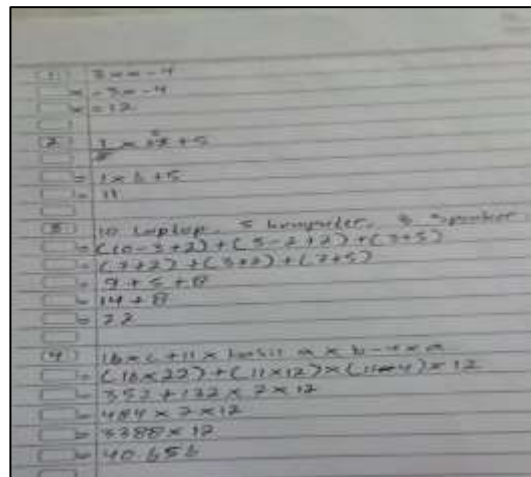 1 3 x -4
= -3 x -4
= 12
2 1 x 12 + 5
= 1 x 6 + 5
= 11
3 10 Laptop, 5 komputer, 3 Speaker
= (10-3+2) + (5-2+2) + (3+5)
= (7+2) + (3+2) + (3+5)
= 9 + 5 + 8
= 14 + 8
= 22
4 16 x c + 11 x hasil a x b - 4 x a
= (16x22) + (11x12) x (11-4) x 12
= 352 + 132 x 7 x 12
= 484 x 7 x 12
= 3388 x 12
= 40.656